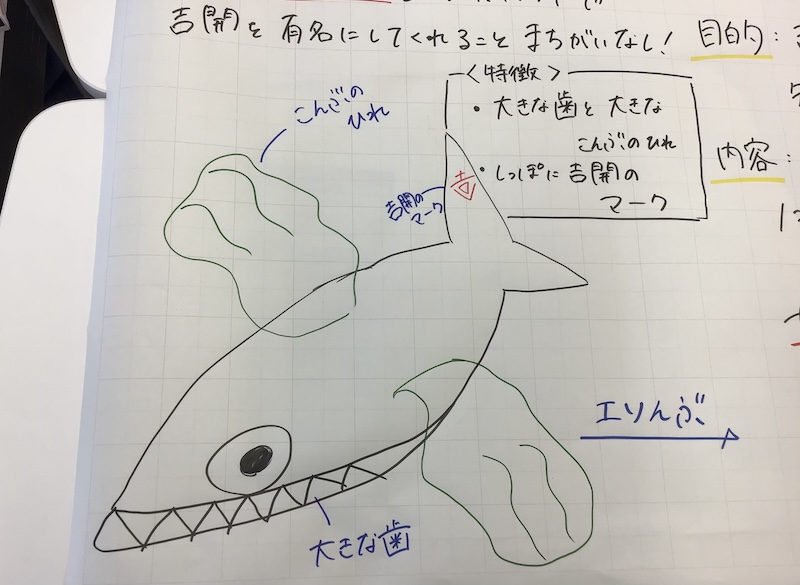 吉開を有名にしてくれることまちがいなし!
目的:
〈特徴〉
・大きな歯と大きな
こんぶのひれ
・しっぽに吉開の
マーク
内容:
こんぶの
ひれ
吉開の
マーク
吉
エソんぶ
大きな歯